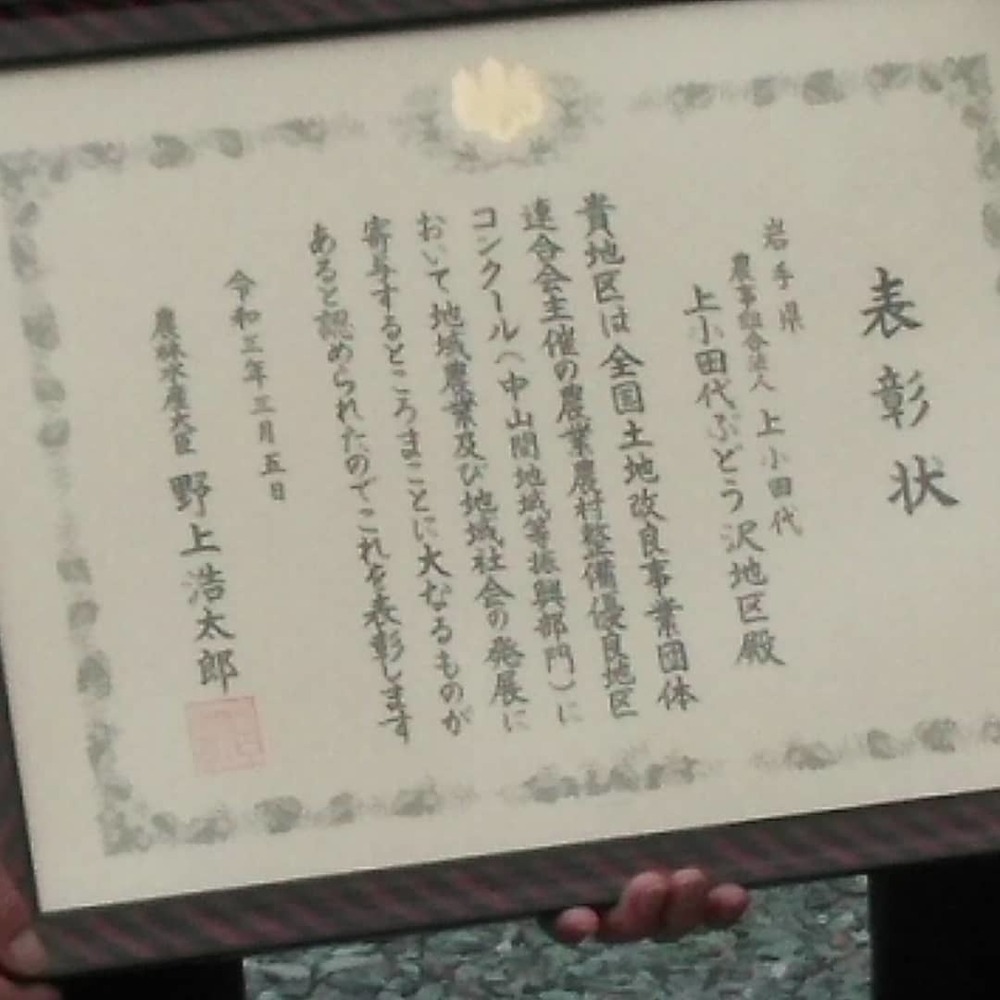 表彰状
岩手県
農事組合法人 上小田代
上小田代ぶどう沢地区殿
貴地区は全国土地改良事業団体
連合会主催の農業農村整備優良地区
コンクール(中山間地域等振興部門)に
おいて地域農業及び地域社会の発展に
寄与するところまことに大なるものが
あると認められたのでこれを表彰します
令和三年三月五日
農林水産大臣 野上浩太郎